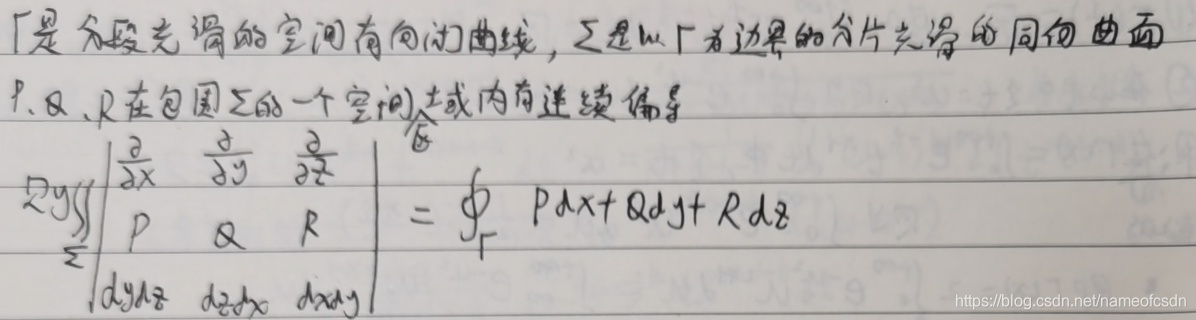 Γ是分段光滑的空间有向闭曲线，Σ是以Γ为边界的分片光滑的同向曲面
P、Q、R在包围Σ的一个空间区域内有连续偏导
则∬_Σ | ∂/∂x ∂/∂y ∂/∂z | = ∮_Γ Pdx+Qdy+Rdz
P Q R
dydz dzdx dxdy
https://blog.csdn.net/nameofcsdn